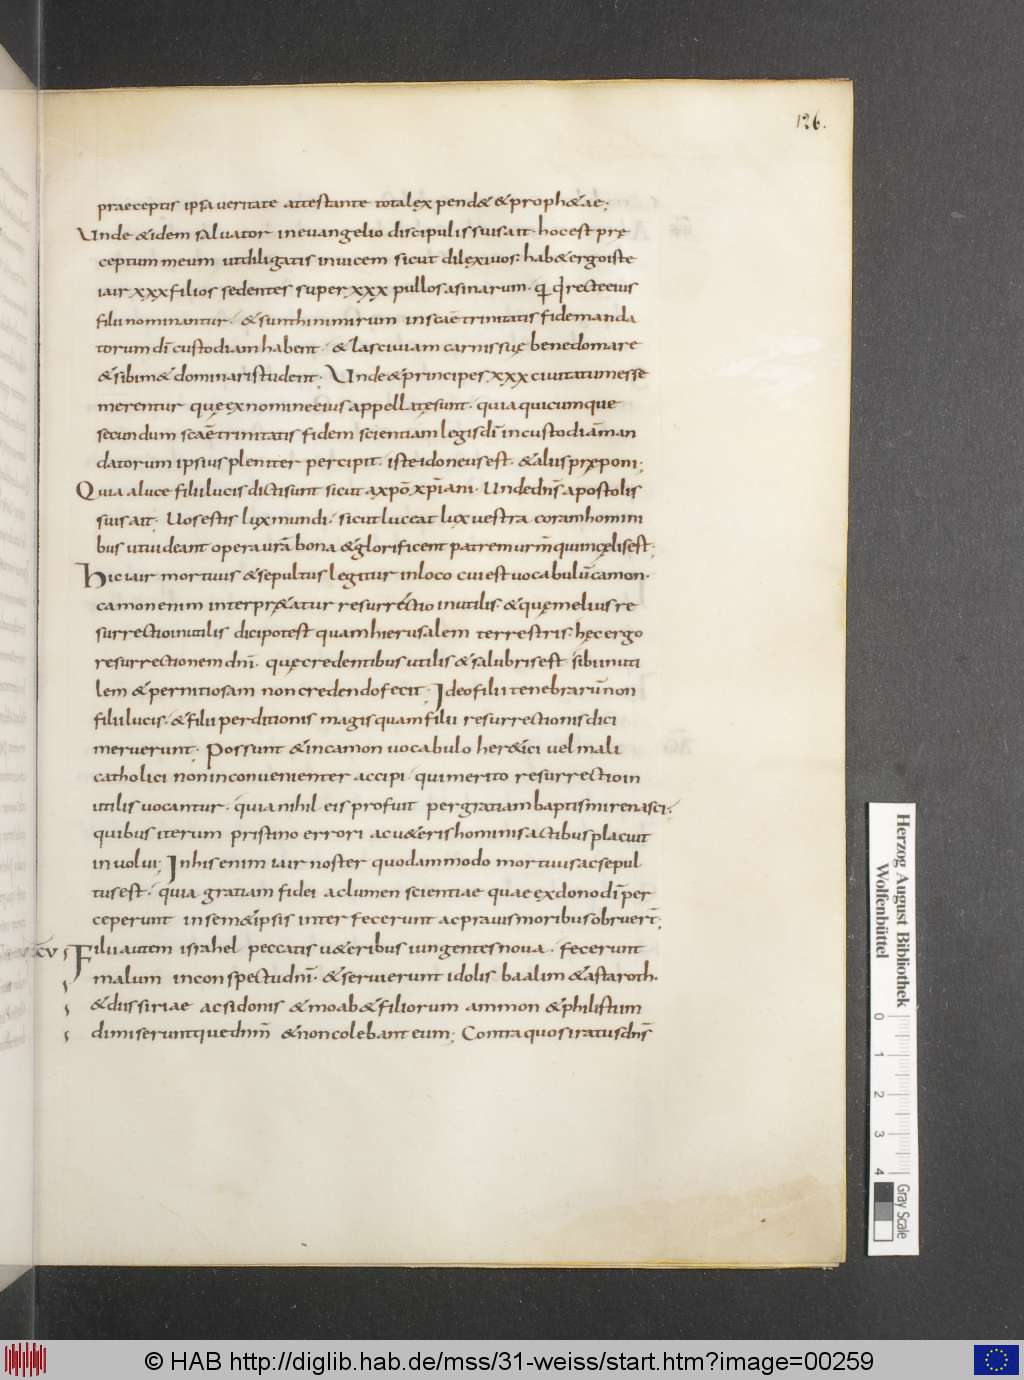 126.
praeceptis ipsa veritate attestante tota lex pendet & prophetae;
Unde & idem salvator in euangelio discipulis suis ait· hoc est prę
ceptum meum ut diligatis invicem sicut dilexi vos: hab& ergo iste
iair xxx filios sedentes super xxx pullos asinarum· recte eius
filii nominantur· & sunt hi nimirum in scae trinitatis fide manda
torum di custodiam habent· & lasciuiam carnis suę bene domare
& sibim& dominari student· Unde & principes xxx civitatum esse
merentur quę ex nomine eius appellatę sunt· quia quicumque
secundum scae trinitatis fidem scientiam legis di in custodiam man
datorum ipsius pleniter percipit· iste idoneus est· & aliis pręponi;
Quia a luce filii lucis dicti sunt sicut a xpo xpiani· Unde dns apostolis
suis ait· Uos estis lux mundi· sic ut luceat lux uestra coram homini
bus ut uideant opera ura bona & glorificent patrem urm qui in cęlis est;
Hic iair mortuus & sepultus legitur in loco cui est uocabulum camon·
camon enim interpr&atur resurrectio inutilis· & quę melius re
surrectio inutilis dici potest quam hierusalem terrestris· hęc ergo
resurrectionem dni· quę credentibus utilis & salubris est sibi inuti
lem & pernitiosam non credendo fecit· Ideo filii tenebrarum non
filii lucis· & filii perditionis magis quam filii resurrectionis dici
meruerunt· Possunt & in camon uocabulo her&ici uel mali
catholici non inconuenienter accipi· qui merito resurrectio in
utilis uocantur· quia nihil eis profuit per gratiam baptismi renasci;
quibus iterum pristino errori ac u&eris hominis actibus placuit
inuolui; In his enim iair noster quodammodo mortuus ac sepul
tus est· quia gratiam fidei ac lumen scientiae quae ex dono di per
ceperunt in sem&ipsis interfecerunt ac prauis moribus obruert;
xcv Filii autem israhel peccatis u&eribus iungentes noua· fecerunt
malum in conspectu dni· & seruierunt idolis baalim & astaroth·
& diis siriae ac sidonis & moab & filiorum ammon & philistum
dimiseruntque dnm & non colebant eum; Contra quos iratus dns
Herzog August Bibliothek
Wolfenbüttel
0 1 2 3 4
Gray Scale
© HAB http://diglib.hab.de/mss/31-weiss/start.htm?image=00259